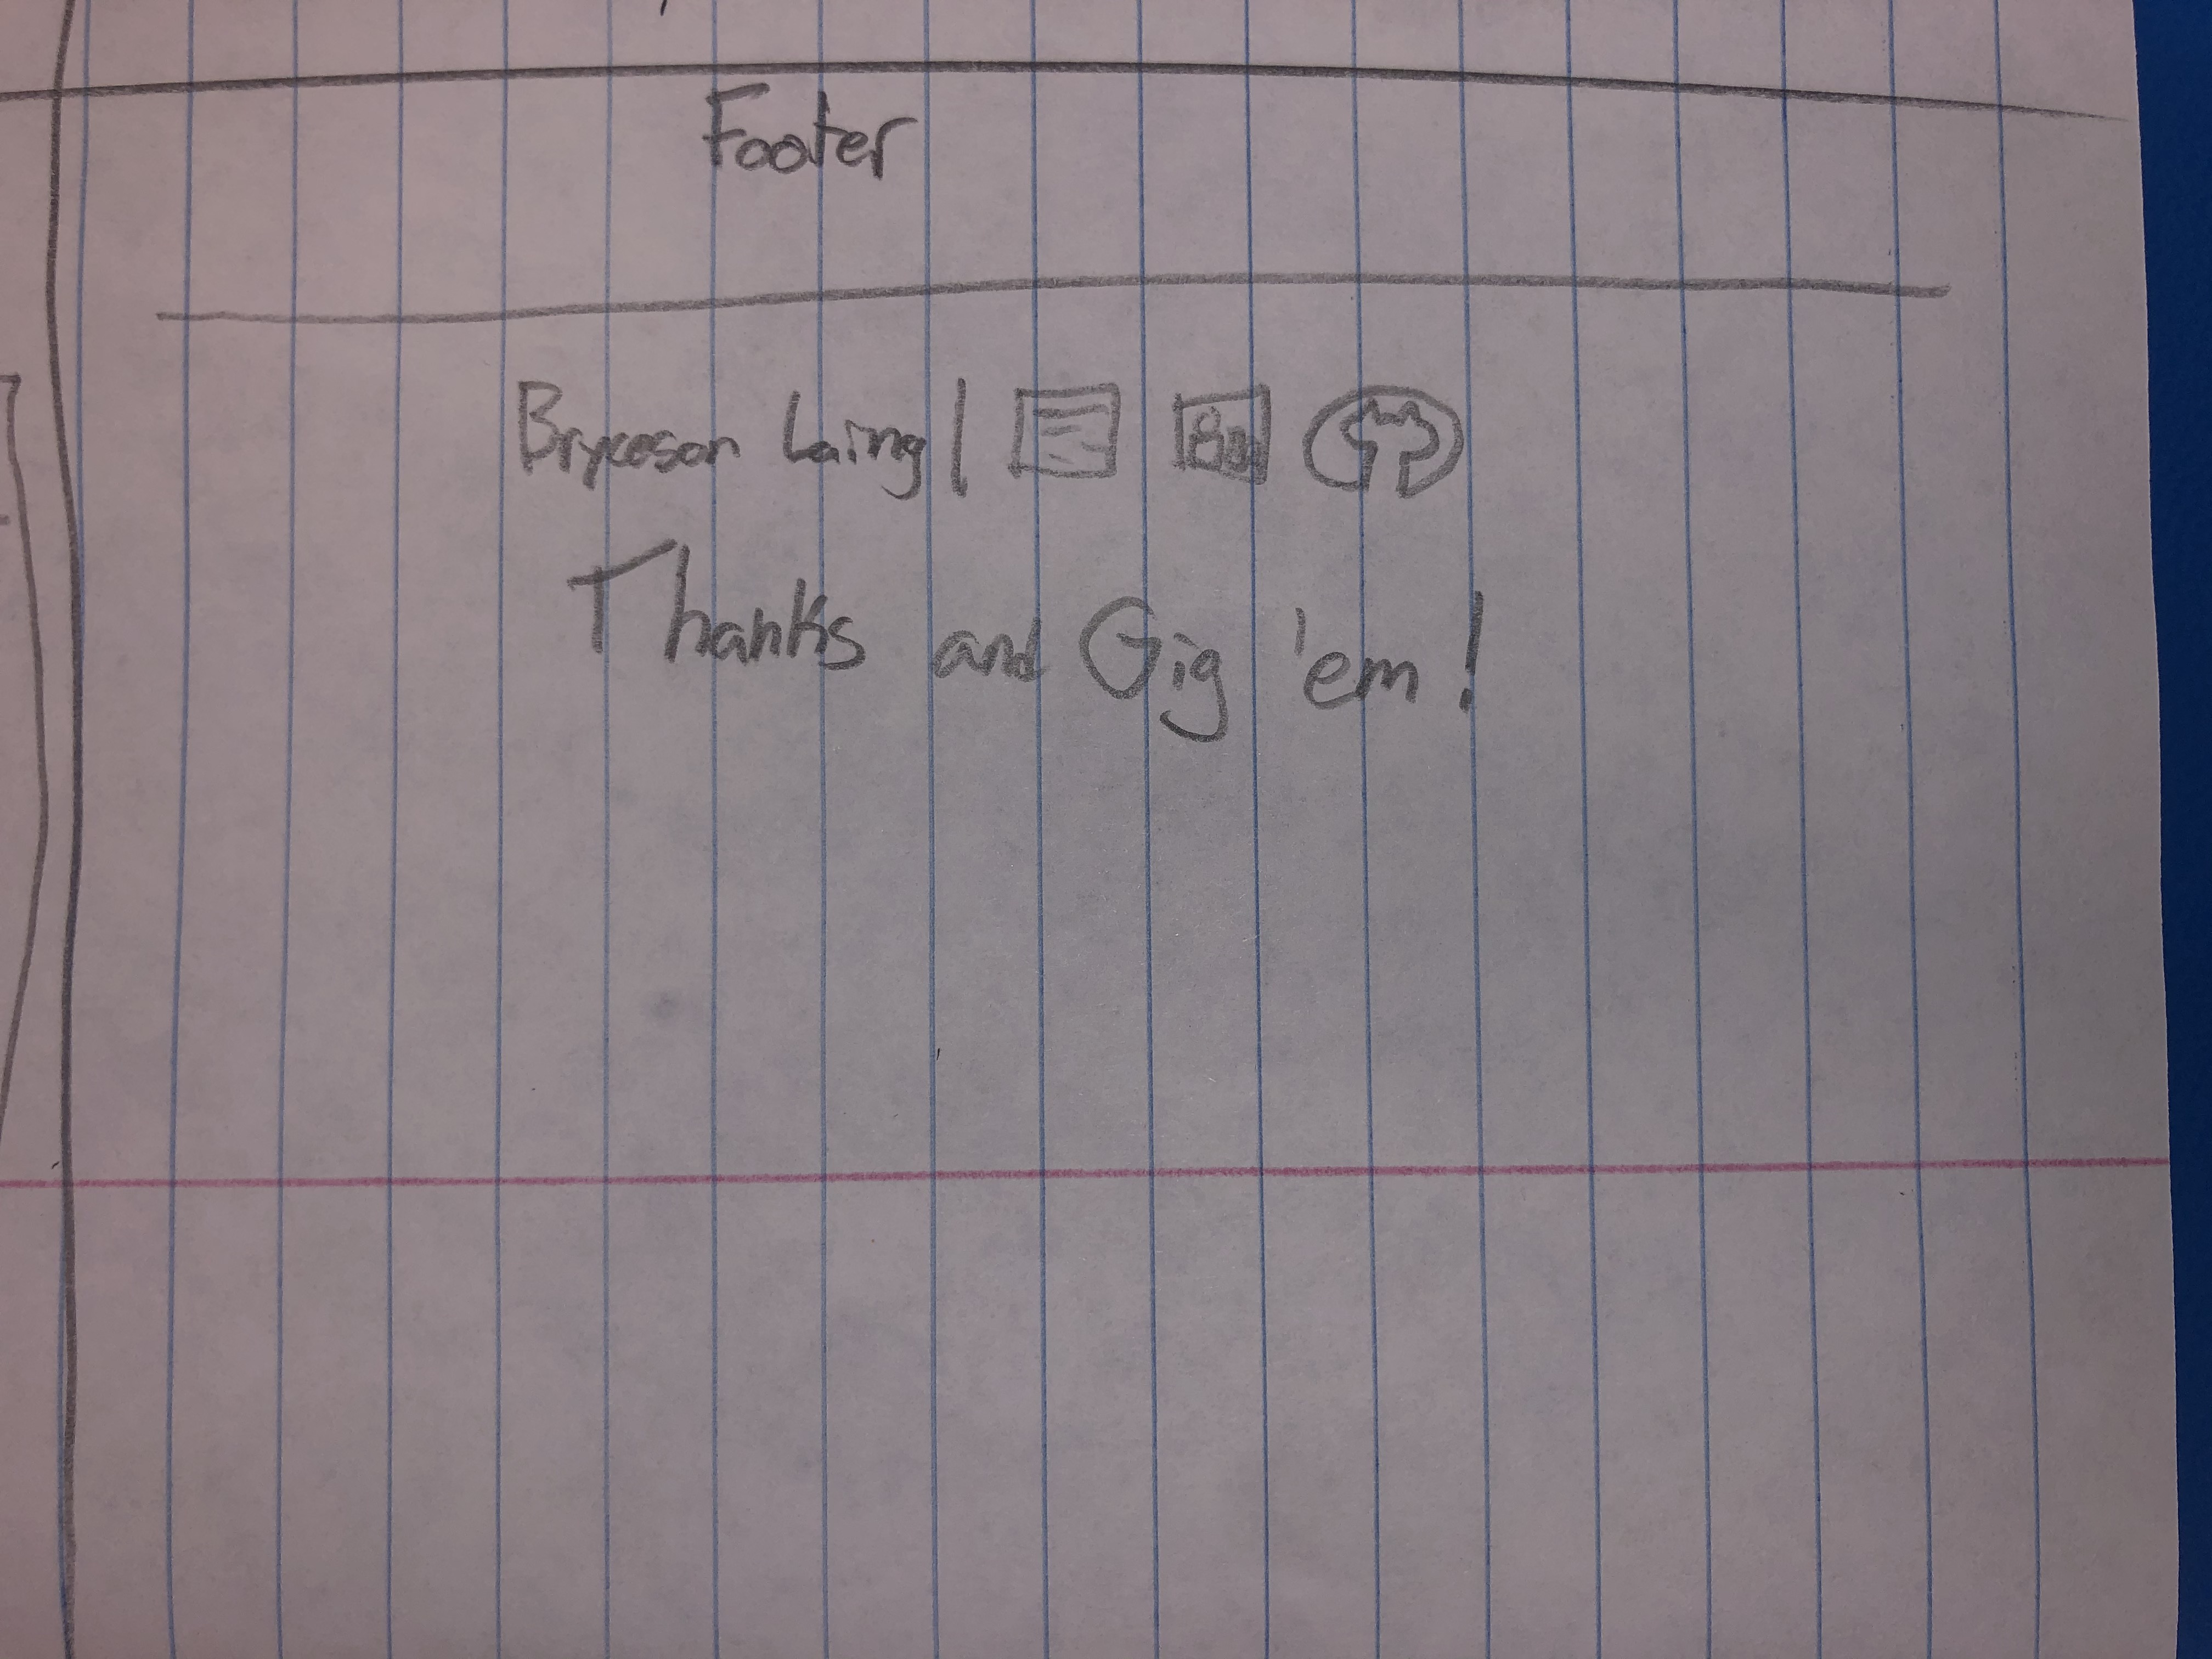 Footer
Bryceson Laing |
Thanks and Gig 'em!